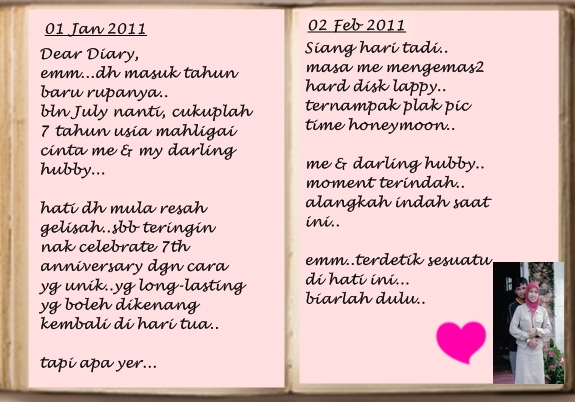 01 Jan 2011
Dear Diary,
emm...dh masuk tahun
baru rupanya..
bln July nanti, cukuplah
7 tahun usia mahligai
cinta me & my darling
hubby...
hati dh mula resah
gelisah..sbb teringin
nak celebrate 7th
anniversary dgn cara
yg unik..yg long-lasting
yg boleh dikenang
kembali di hari tua..
tapi apa yer...
02 Feb 2011
Siang hari tadi..
masa me mengemas2
hard disk lappy..
ternampak plak pic
time honeymoon..
me & darling hubby..
moment terindah..
alangkah indah saat
ini..
emm..terdetik sesuatu
di hati ini...
biarlah dulu..